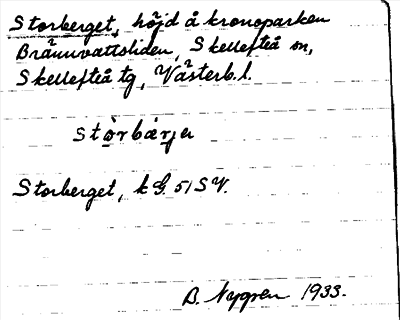 Storberget, höjd å kronoparken
Brännvattsliden, Skellefteå sn,
Skellefteå tg, Västerb. l.
stòrbærje
Storberget, k G. 51 SV.
B. Nygren 1933.